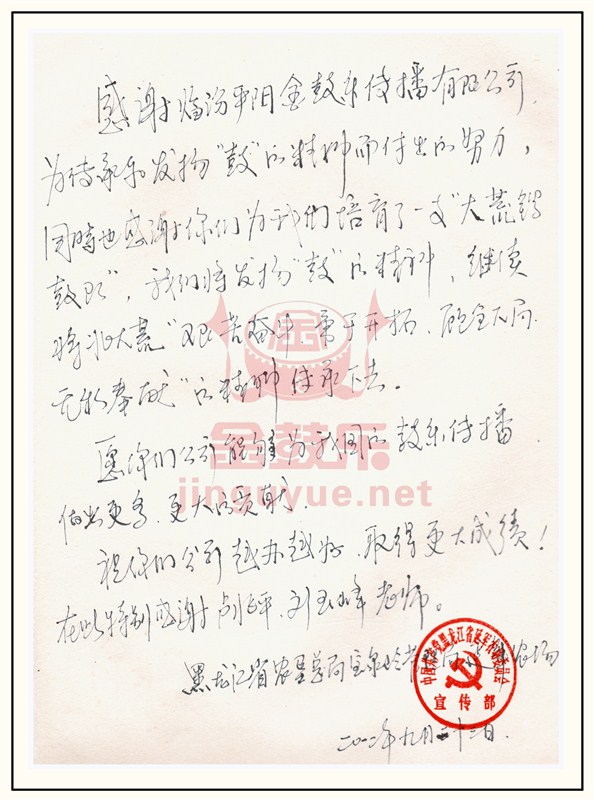 感谢临汾平阳金鼓乐传播有限公司
为传承和发扬“鼓”的精神而付出的努力，
同时也感谢你们为我们培育了一支“大荒锣
鼓队”，我们将发扬“鼓”的精神，继续
将北大荒“艰苦奋斗、勇于开拓、顾全大局、
无私奉献”的精神传承下去。
愿你们公司能够为我国的鼓乐传播
做出更多、更大的贡献、
祝你们公司越办越好、取得更大成绩！
在此特别感谢 平、刘玉峰老师。
黑龙江省农垦总局宝泉岭 农场
二〇一〇年九月二十二日.
金鼓乐
jinguyue.net
宣传部